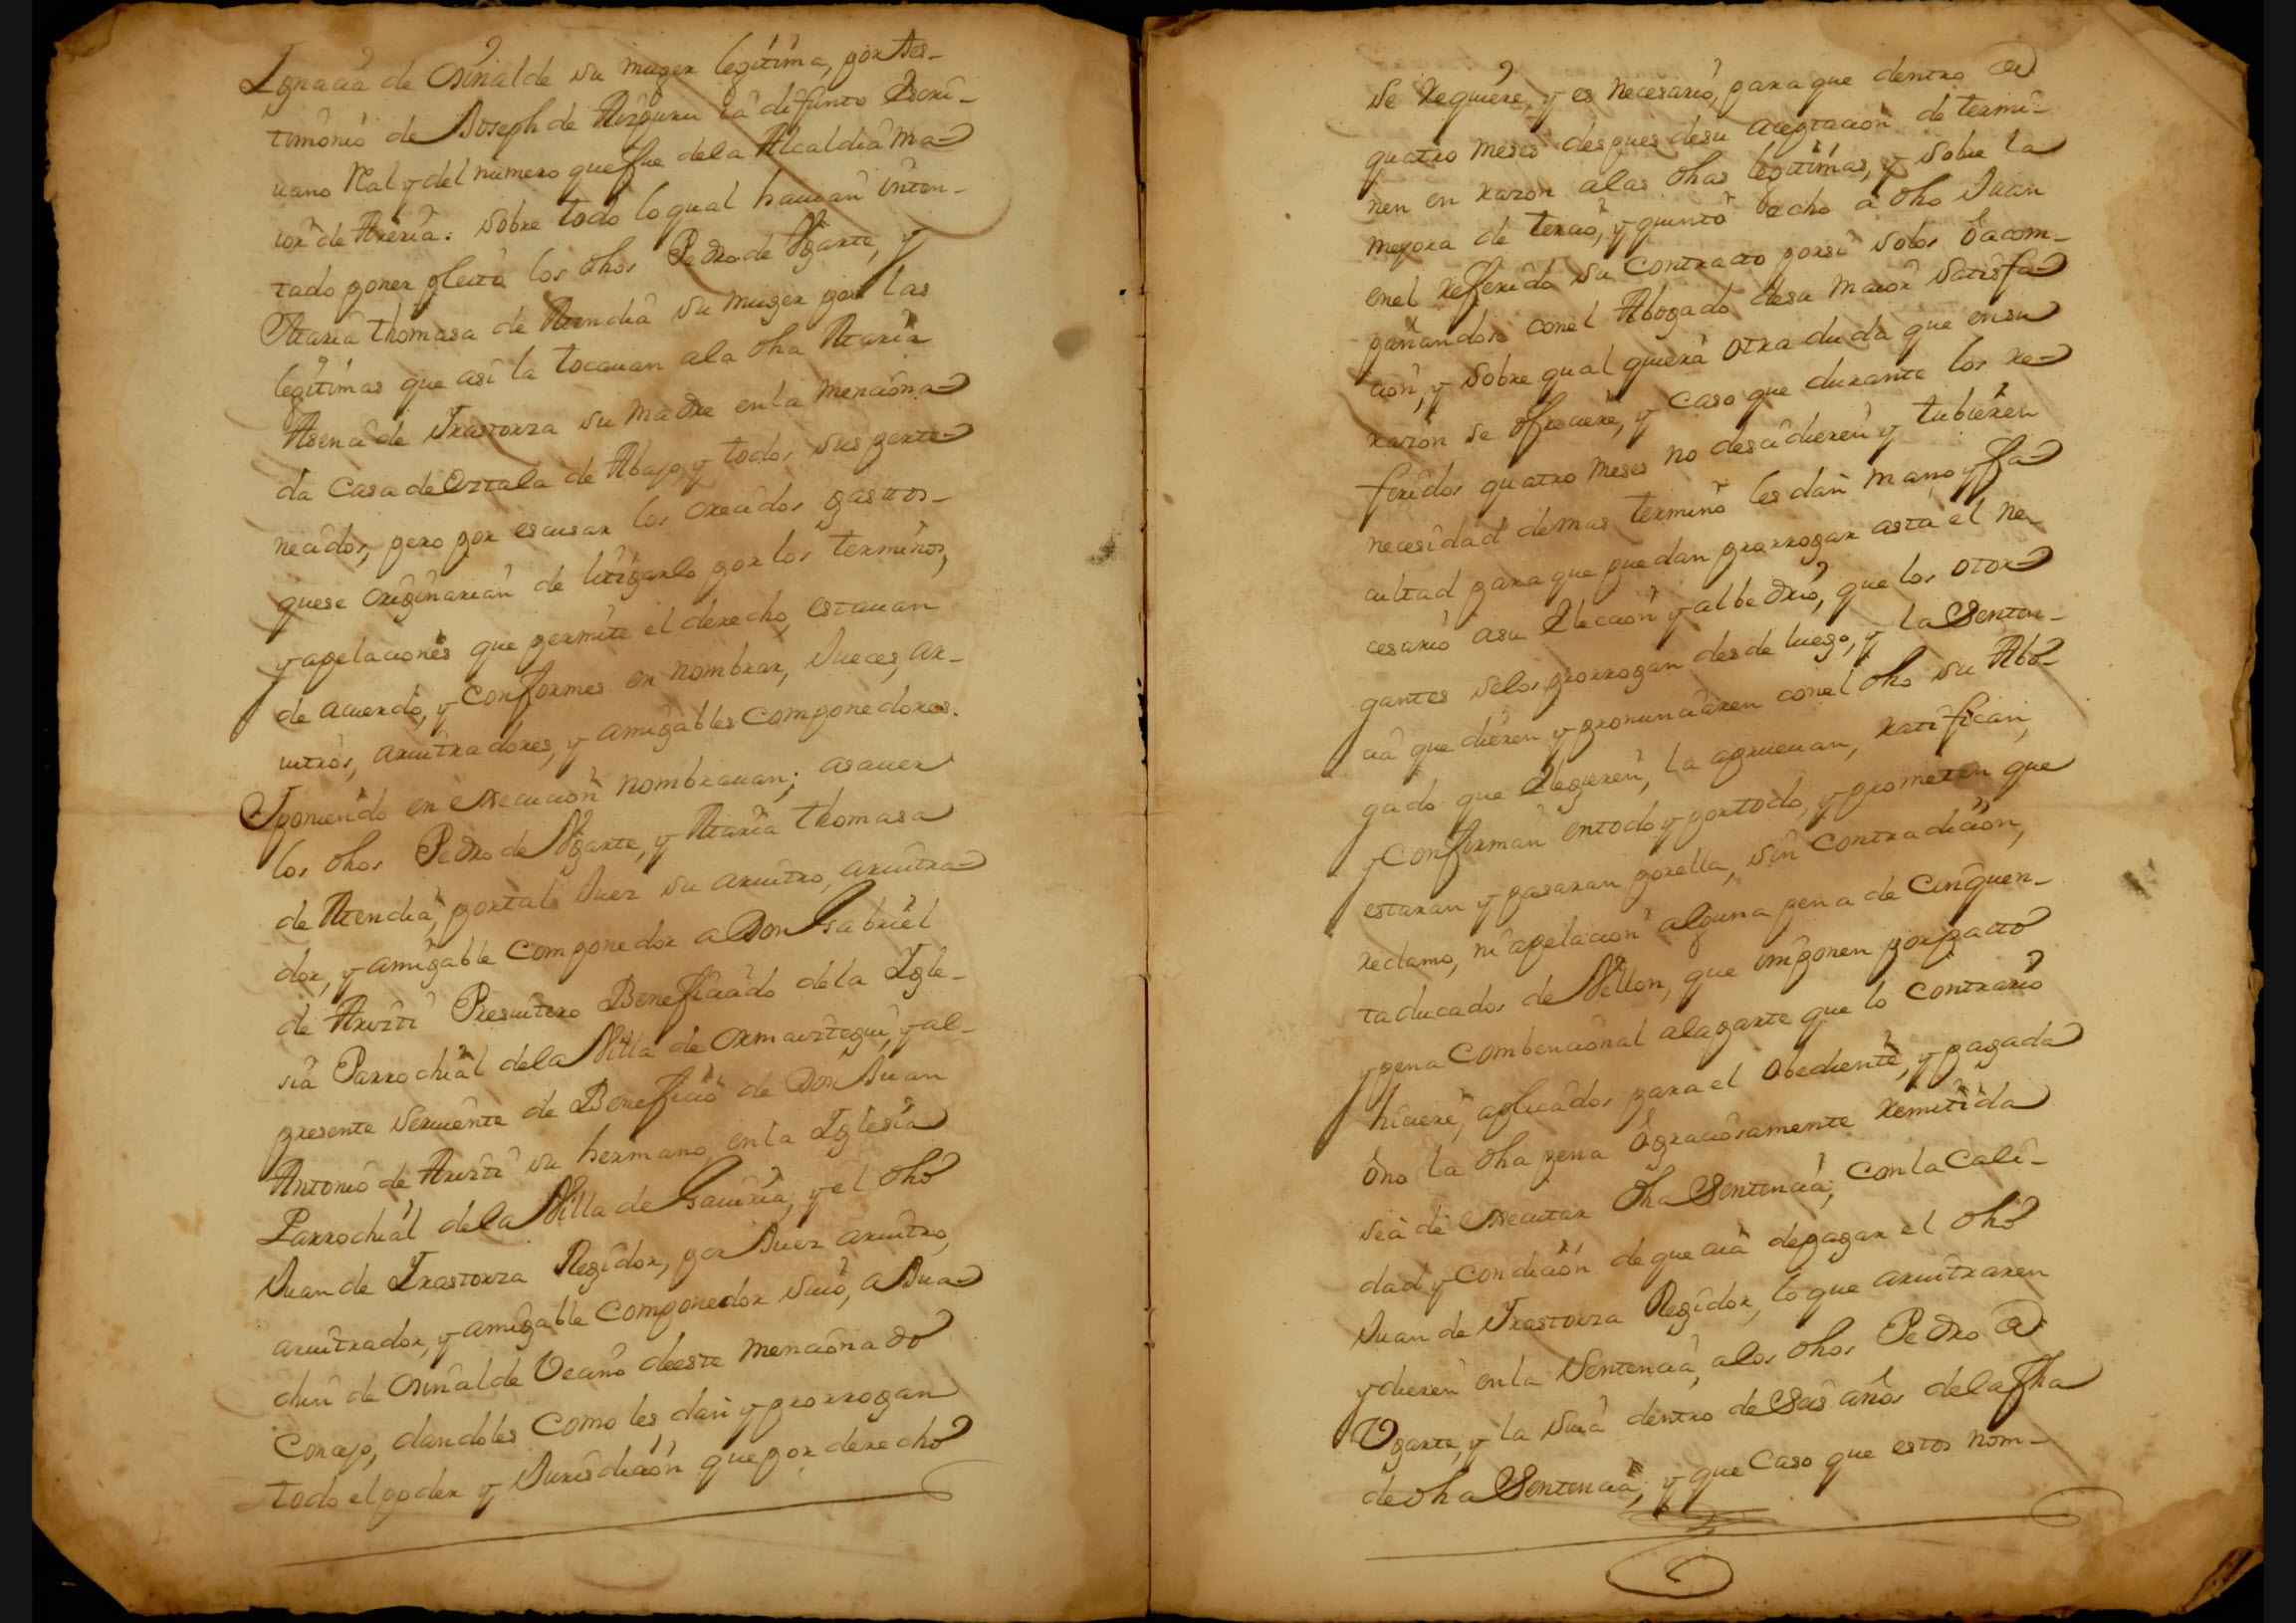 Ignacia de Osinalde su muger legitima, por tes-
timonio de Joseph de Aizpuru ia difunto Escri-
uano Ral y del numero que fue dela Alcaldia Ma-
ior de Areria: sobre todo lo qual hauian inten-
tado poner pleito los dhos Pedro de Vgarte, y
Maria thomasa de Mendia su muger por las
legitimas que asi la tocauan ala dha Maria
Asencia de Irastorza su madre enla menciona-
da Casa de Oztala de Abajo, y todos sus perte-
necidos, pero por escusar los crecidos gastos-
quese originarian de litigarlo por los terminos,
y apelaciones que permite el derecho, estauan
de acuerdo, y Conformes en nombrar, Jueces, ar-
uitros, aruitradores, y amigables Componedores.
Iponiendo en execucion nombrauan; asauer
los dhos Pedro de Vgarte, y Maria thomasa
de Mendia, portal Juez su aruitro, aruitra-
dor, y amigable Componedor a Don Gabriel
de Aruiti Presuitero Beneficiado dela Igle-
sia Parrochial dela Villa de Ormaiztegui, y al-
presente Seruiente de Beneficio de Don Juan
Antonio de Aruiti su hermano, enla Iglesia
Parrochial dela Villa de Gauiria, y el dho
Juan de Irastorza Regidor, por Juez aruitro,
aruitrador, y amigable Componedor suio, a Jua-
chin de Osinalde Vecino deeste mencionado
Concejo, dandoles Como les dan y prorrogan
todo el poder y Jurisdicion que por derecho
se requiere, y es necesario, para que dentro de
quatro meses despues desu aceptacion determi-
nen en razon alas dhas legitimas, y sobre la
mejora de tercio, y quinto hecho a dho Juan
enel referido su Contracto porsi solos ò acom-
pañandose conel Abogado desu maior satisfa-
cion, y sobre qual quiera otra duda que ensu
razon se ofreciere, y Caso que durante los re-
feridos quatro meses no descidieren y tubieren
necesidad demas termino les dan mano y fa-
cultad para que puedan prorrogar asta el ne-
cesario asu eleccion y albedrio, que los otor-
gantes selos prorrogan desde luego, y la Senten-
cia que dieren y pronunciaren conel dho su Abo-
gado que eleguieren, la aprueuan, ratifican,
y Confirman entodo y portodo, y prometen que
estaran y pasaran porella, sin Contradicion,
reclamo, ni apelacion alguna pena de Cinquen-
ta ducados de Vellon, que imponen por pacto
y pena Combencional ala parte que lo contrario
hiciere, aplicados para el obediente, y pagada
òno la dha pena ògraciosamente remitida
sea de executar dha Sentencia, Con la Cali-
dad y Condicion de que aia depagar el dho
Juan de Irastorza Regidor, lo que aruitraren
y dieren enla Sentencia, alos dhos Pedro de
Vgarte, y la suia dentro de Seis años dela fha
de dha Sentencia, y que Caso que estos nom-